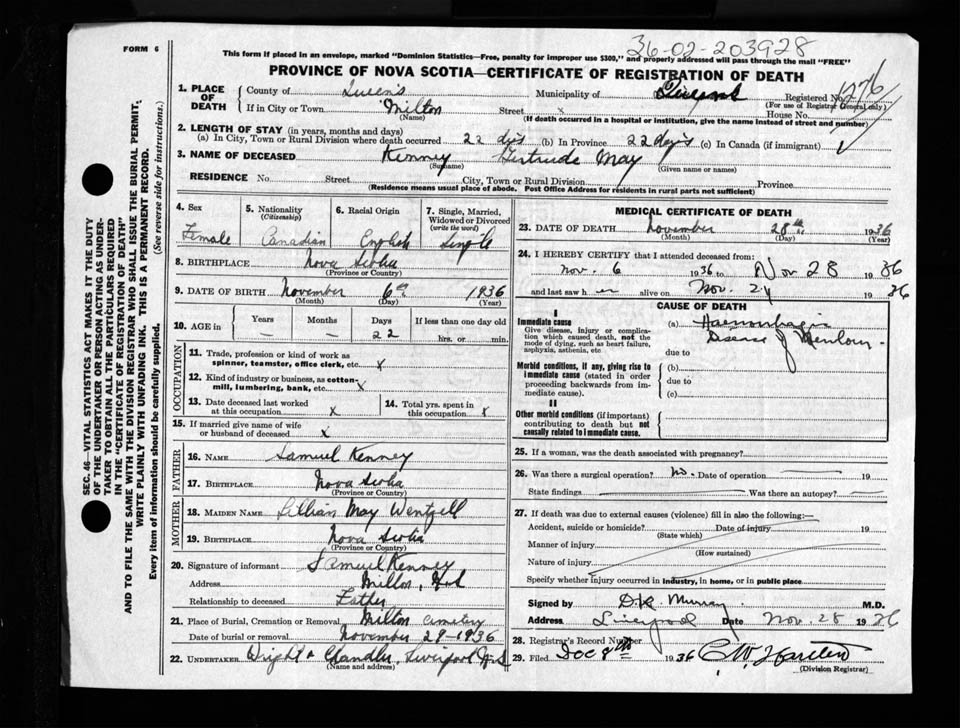 FORM 6
36-02-203928
This form if placed in an envelope, marked "Dominion Statistics—Free, penalty for improper use $300," and properly addressed will pass through the mail "FREE"
PROVINCE OF NOVA SCOTIA—CERTIFICATE OF REGISTRATION OF DEATH
1. PLACE OF DEATH
County of Queen's Municipality of Queens Registered No. 1276
(For use of Registrar General only)
If in City or Town Milton Street x House No.
(Name) (If death occurred in a hospital or institution, give the name instead of street and number)
2. LENGTH OF STAY (in years, months and days)
(a) In City, Town or Rural Division where death occurred 22 dys (b) In Province 22 days (c) In Canada (if immigrant)
3. NAME OF DECEASED Kenney Gertrude May
(Surname) (Given name or names)
RESIDENCE No. Street City, Town or Rural Division Province
(Residence means usual place of abode. Post Office Address for residents in rural parts not sufficient)
4. Sex 5. Nationality (Citizenship) 6. Racial Origin 7. Single, Married, Widowed or Divorced (write the word)
Female Canadian English Single
8. BIRTHPLACE Nova Scotia
(Province or Country)
9. DATE OF BIRTH November 6th 1936
(Month) (Day) (Year)
10. AGE in Years Months Days If less than one day old
— — 22 hrs. or min.
OCCUPATION
11. Trade, profession or kind of work as spinner, teamster, office clerk, etc. x
12. Kind of industry or business, as cotton-mill, lumbering, bank, etc. x
13. Date deceased last worked at this occupation x
14. Total yrs. spent in this occupation x
15. If married give name of wife or husband of deceased x
FATHER
16. NAME Samuel Kenney
17. BIRTHPLACE Nova Scotia
(Province or Country)
MOTHER
18. MAIDEN NAME Lillian May Wentzell
19. BIRTHPLACE Nova Scotia
(Province or Country)
20. Signature of informant Samuel Kenney
Address Milton, N.S
Relationship to deceased Father
21. Place of Burial, Cremation or Removal Milton Cemetery
Date of burial or removal November 29-1936
22. UNDERTAKER Wright & Chandler, Liverpool N.S
(Name and address)
MEDICAL CERTIFICATE OF DEATH
23. DATE OF DEATH November 28th 1936
(Month) (Day) (Year)
24. I HEREBY CERTIFY that I attended deceased from:
Nov. 6 1936 to Nov 28 1936
and last saw her alive on Nov. 1936
CAUSE OF DEATH
I
Immediate cause
Give disease, injury or complication which caused death, not the mode of dying, such as heart failure, asphyxia, asthenia, etc.
(a) Haemorrhagic
Disease of Newborn
due to
Morbid conditions, if any, giving rise to immediate cause (stated in order proceeding backwards from immediate cause).
(b)
due to
(c)
II
Other morbid conditions (if important) contributing to death but not causally related to immediate cause.
25. If a woman, was the death associated with pregnancy?
26. Was there a surgical operation? No. Date of operation 19
State findings Was there an autopsy?
27. If death was due to external causes (violence) fill in also the following:—
Accident, suicide or homicide? Date of injury 19
(State which)
Manner of injury
(How sustained)
Nature of injury
Specify whether injury occurred in industry, in home, or in public place
Signed by D.K. Murray M.D.
Address Liverpool Date Nov. 28 1936
28. Registrar's Record Number
29. Filed Dec 8th 1936
(Division Registrar)
SEC. 46—VITAL STATISTICS ACT MAKES IT THE DUTY
OF THE UNDERTAKER OR PERSON ACTING AS UNDER-
TAKER TO OBTAIN ALL THE PARTICULARS REQUIRED
IN THE "CERTIFICATE OF REGISTRATION OF DEATH"
AND TO FILE THE SAME WITH THE DIVISION REGISTRAR WHO SHALL ISSUE THE BURIAL PERMIT.
WRITE PLAINLY WITH UNFADING INK. THIS IS A PERMANENT RECORD.
Every item of information should be carefully supplied. (See reverse side for instructions.)